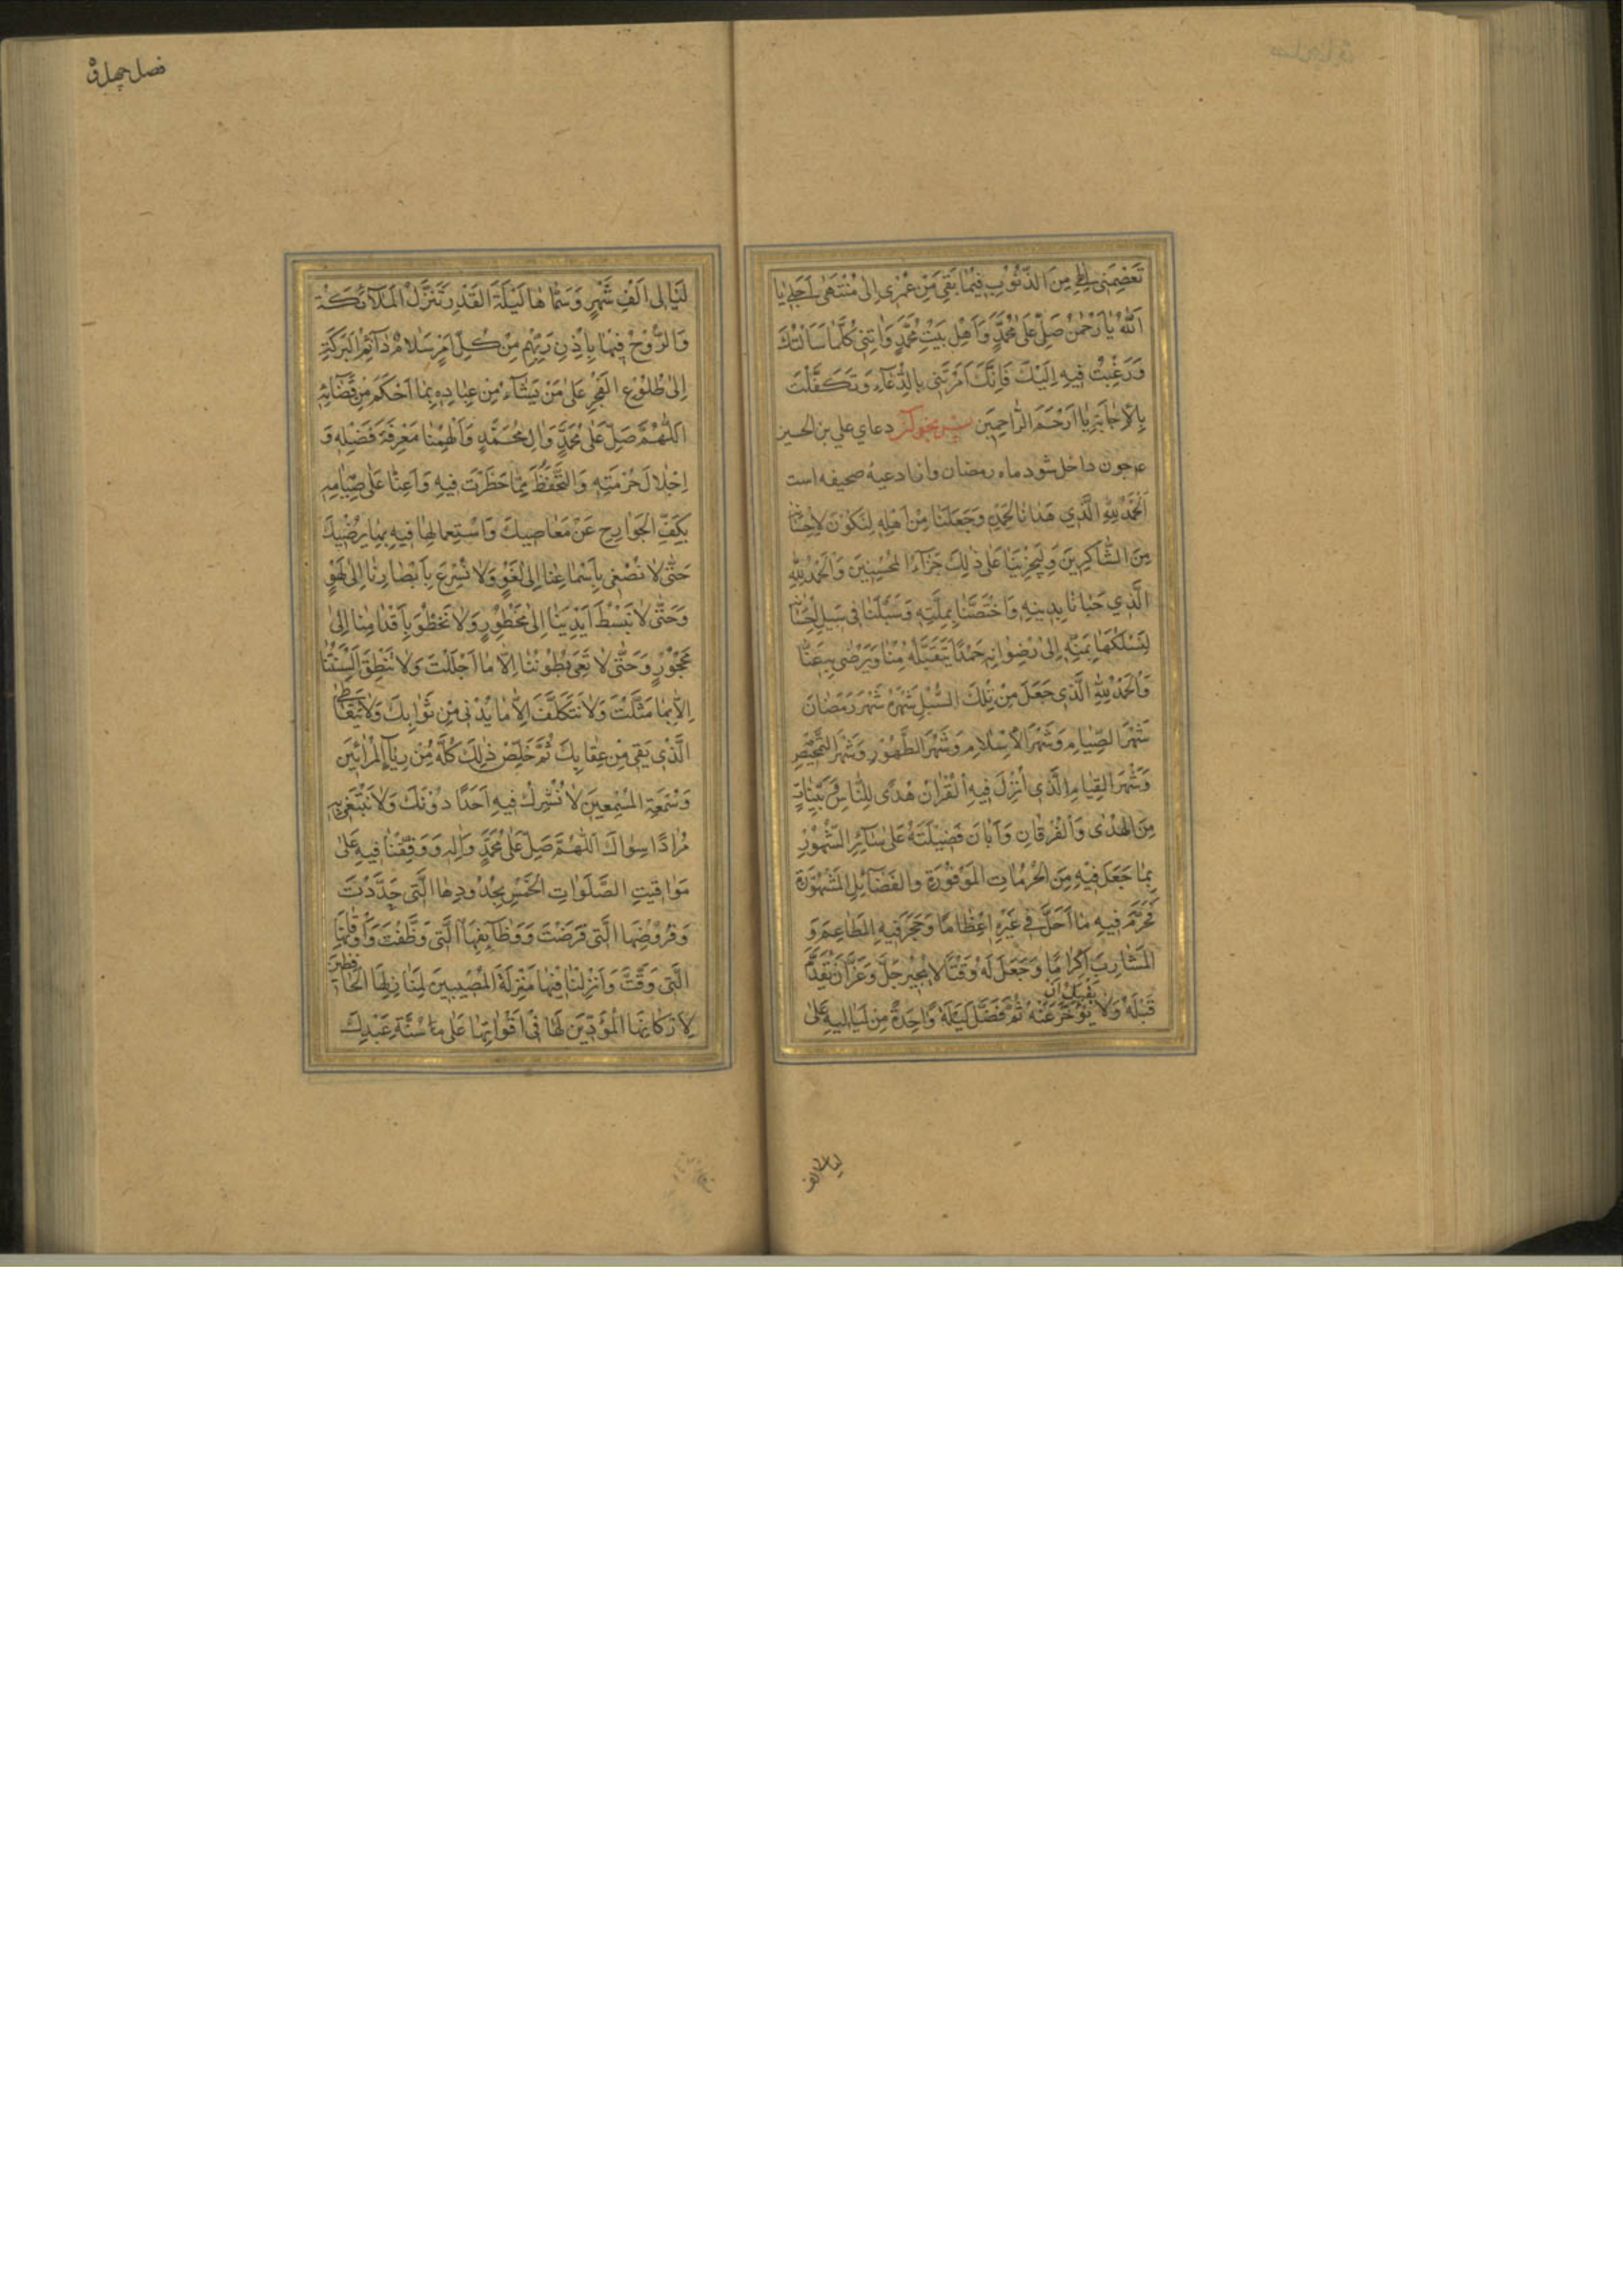 تَعْصِمَنِي إِلٰهِي مِنَ الذُّنُوبِ فِيمَا بَقِيَ مِنْ عُمْرِي إِلَى مُنْتَهَى أَجَلِي يَا
اَللّٰهُ يَا رَحْمٰنُ صَلِّ عَلَى مُحَمَّدٍ وَأَهْلِ بَيْتِ مُحَمَّدٍ وَاٰتِنِي كُلَّمَا سَأَلْتُكَ
وَرَغِبْتُ فِيهِ إِلَيْكَ فَإِنَّكَ أَمَرْتَنِي بِالدُّعَآءِ وَتَكَفَّلْتَ
بِالْإِجَابَةِ يَا أَرْحَمَ الرَّاحِمِينَ پس بخوان دعاي علي بن الحسين
ع چون داخل شود ماه رمضان و از ادعيهٔ صحيفه است
اَلْحَمْدُ لِلّٰهِ الَّذِي هَدَانَا لِحَمْدِهِ وَجَعَلَنَا مِنْ أَهْلِهِ لِنَكُونَ لِإِحْسَانِهِ
مِنَ الشَّاكِرِينَ وَلِيَجْزِيَنَا عَلَى ذٰلِكَ جَزَآءَ الْمُحْسِنِينَ وَالْحَمْدُ لِلّٰهِ
الَّذِي حَبَانَا بِدِينِهِ وَاخْتَصَّنَا بِمِلَّتِهِ وَسَبَّلَنَا فِي سَبِيلِ إِحْسَانِهِ
لِنَسْلُكَهَا بِمَنِّهِ إِلَى رِضْوَانِهِ حَمْدًا يَتَقَبَّلُهُ مِنَّا وَيَرْضَى بِهِ عَنَّا
وَالْحَمْدُ لِلّٰهِ الَّذِي جَعَلَ مِنْ تِلْكَ السُّبُلِ شَهْرَهُ شَهْرَ رَمَضَانَ
شَهْرَ الصِّيَامِ وَشَهْرَ الْإِسْلَامِ وَشَهْرَ الطَّهُورِ وَشَهْرَ التَّمْحِيصِ
وَشَهْرَ الْقِيَامِ الَّذِي أُنْزِلَ فِيهِ الْقُرْاٰنُ هُدًى لِلنَّاسِ وَبَيِّنَاتٍ
مِنَ الْهُدَى وَالْفُرْقَانِ وَأَبَانَ فَضِيلَتَهُ عَلَى سَآئِرِ الشُّهُورِ
بِمَا جَعَلَ فِيهِ مِنَ الْحُرُمَاتِ الْمَوْفُورَةِ وَالْفَضَآئِلِ الْمَشْهُورَةِ
فَحَرَّمَ فِيهِ مَا أَحَلَّ فِي غَيْرِهِ إِعْظَامًا وَحَجَرَ فِيهِ الْمَطَاعِمَ وَ
الْمَشَارِبَ إِكْرَامًا وَجَعَلَ لَهُ وَقْتًا لَا يُجِيزُ جَلَّ وَعَزَّ أَنْ يُقَدَّمَ
يَقْبَلُ أَنْ
قَبْلَهُ وَلَا يُؤَخَّرَ عَنْهُ ثُمَّ فَضَّلَ لَيْلَةً وَاحِدَةً مِنْ لَيَالِيهِ عَلَى
ليالى الف
فصل چهل
لَيَالِي أَلْفِ شَهْرٍ وَسَمَّاهَا لَيْلَةَ الْقَدْرِ تَنَزَّلُ الْمَلَآئِكَةُ
وَالرُّوحُ فِيهَا بِإِذْنِ رَبِّهِمْ مِنْ كُلِّ أَمْرٍ سَلَامٌ دَآئِمُ الْبَرَكَةِ
إِلَى طُلُوعِ الْفَجْرِ عَلَى مَنْ يَشَآءُ مِنْ عِبَادِهِ بِمَا أَحْكَمَ مِنْ قَضَآئِهِ
اَللّٰهُمَّ صَلِّ عَلَى مُحَمَّدٍ وَاٰلِ مُحَمَّدٍ وَأَلْهِمْنَا مَعْرِفَةَ فَضْلِهِ وَ
إِجْلَالَ حُرْمَتِهِ وَالتَّحَفُّظَ مِمَّا حَظَرْتَ فِيهِ وَأَعِنَّا عَلَى صِيَامِهِ
بِكَفِّ الْجَوَارِحِ عَنْ مَعَاصِيكَ وَاسْتِعْمَالِهَا فِيهِ بِمَا يُرْضِيكَ
حَتَّى لَا نُصْغِيَ بِأَسْمَاعِنَا إِلَى لَغْوٍ وَلَا نُسْرِعَ بِأَبْصَارِنَا إِلَى لَهْوٍ
وَحَتَّى لَا نَبْسُطَ أَيْدِيَنَا إِلَى مَحْظُورٍ وَلَا نَخْطُوَ بِأَقْدَامِنَا إِلَى
مَحْجُورٍ وَحَتَّى لَا تَعِيَ بُطُونُنَا إِلَّا مَا أَحْلَلْتَ وَلَا تَنْطِقَ أَلْسِنَتُنَا
إِلَّا بِمَا مَثَّلْتَ وَلَا نَتَكَلَّفَ إِلَّا مَا يُدْنِي مِنْ ثَوَابِكَ وَلَا نَتَعَاطَى
الَّذِي يَقِي مِنْ عِقَابِكَ ثُمَّ خَلِّصْ ذٰلِكَ كُلَّهُ مِنْ رِيَآءِ الْمُرَآئِينَ
وَسُمْعَةِ الْمُسْمِعِينَ لَا نُشْرِكُ فِيهِ أَحَدًا دُونَكَ وَلَا نَبْتَغِي بِهِ
مُرَادًا سِوَاكَ اَللّٰهُمَّ صَلِّ عَلَى مُحَمَّدٍ وَاٰلِهِ وَوَفِّقْنَا فِيهِ عَلَى
مَوَاقِيتِ الصَّلَوَاتِ الْخَمْسِ بِحُدُودِهَا الَّتِي حَدَّدْتَ
وَفُرُوضِهَا الَّتِي فَرَضْتَ وَوَظَآئِفِهَا الَّتِي وَظَّفْتَ وَأَوْقَاتِهَا
الَّتِي وَقَّتَّ وَأَنْزِلْنَا فِيهَا مَنْزِلَةَ الْمُصِيبِينَ لِمَنَازِلِهَا الْحَافِظِينَ
لِأَرْكَانِهَا الْمُؤَدِّينَ لَهَا فِي أَوْقَاتِهَا عَلَى مَا سَنَّهُ عَبْدُكَ